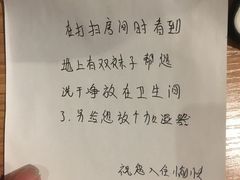 在打扫房间时看到
地上有双袜子帮您
洗干净放在卫生间
了.另给您放个加湿器
祝您入住愉快